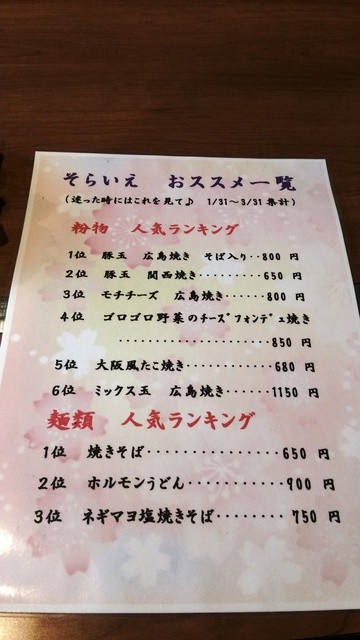 そらいえ おススメ一覧
(迷った時にはこれを見て♪ 1/31～3/31 集計)
粉物 人気ランキング
1位 豚玉 広島焼き そば入り‥800 円
2位 豚玉 関西焼き‥‥‥‥‥650 円
3位 モチチーズ 広島焼き‥‥‥800 円
4位 ゴロゴロ野菜のﾁｰｽﾞﾌｫﾝﾃﾞｭ焼き
‥‥‥‥‥‥‥‥‥‥‥850 円
5位 大阪風たこ焼き‥‥‥‥‥‥680 円
6位 ミックス玉 広島焼き‥‥‥1150 円
麺類 人気ランキング
1位 焼きそば‥‥‥‥‥‥‥650 円
2位 ホルモンうどん‥‥‥‥‥900 円
3位 ネギマヨ塩焼きそば‥‥‥‥750 円